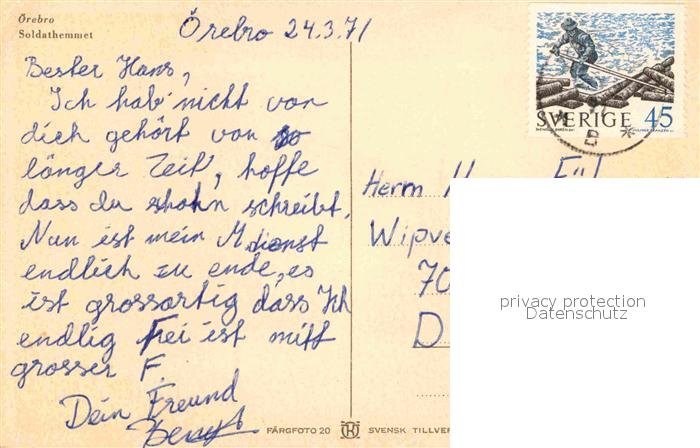 Örebro
Soldathemmet
Örebro 24.3.71
Bester Hans,
Ich hab' nicht von
dich gehört von so
länger Zeit, hoffe
dass du schreibt.
Nun ist mein M dienst
endlich zu ende, es
ist grossartig dass Ich
endlig Frei ist mitt
grosser F.
Dein Freund
Bengt
SVERIGE 45
B
Herrn H
Wipve
70
D
privacy protection
Datenschutz
FÄRGFOTO 20 SVENSK TILLVER